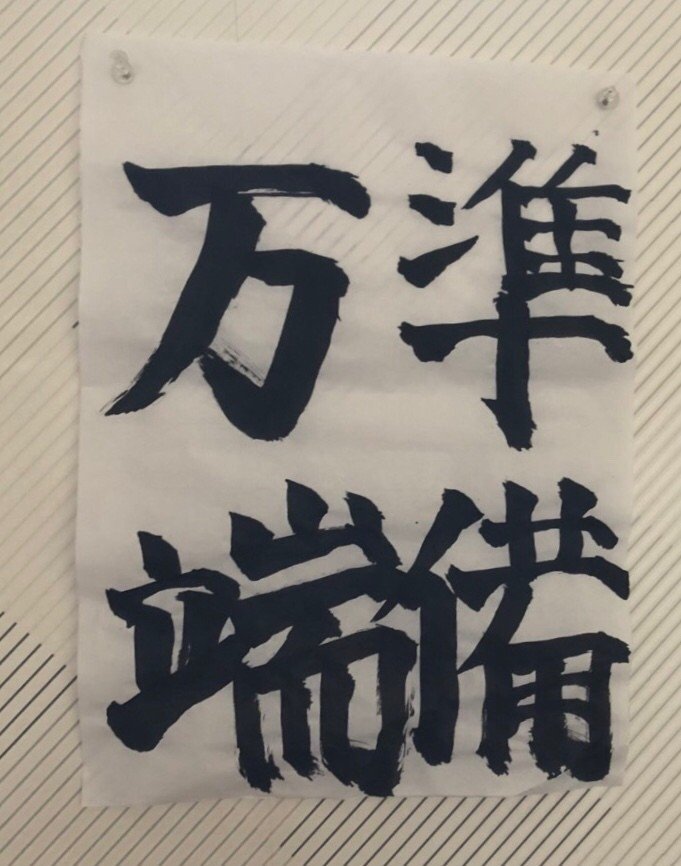 準備
万端